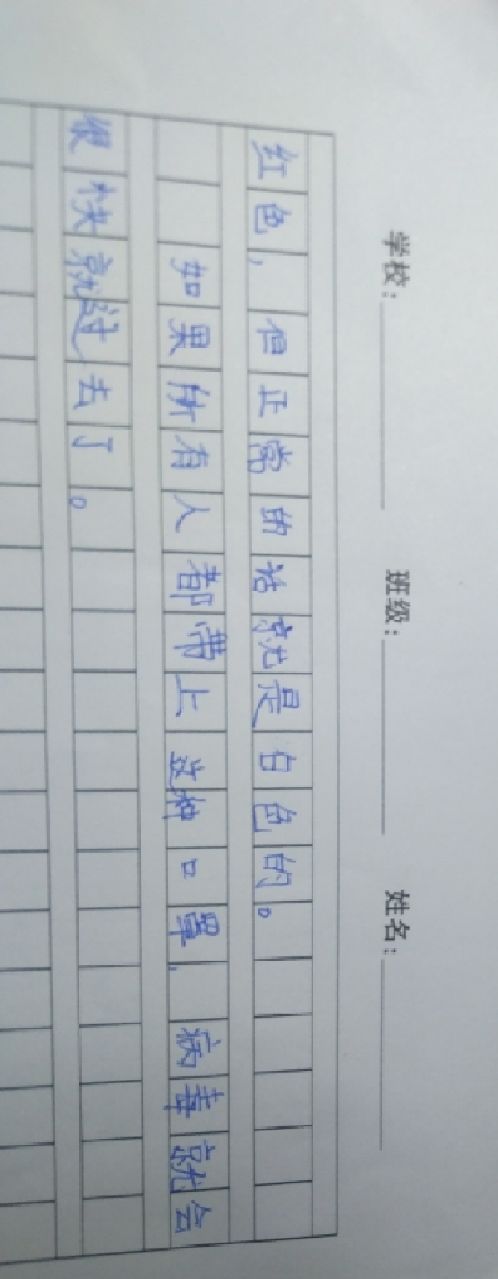 学校： 班级： 姓名：
红色，但正常的话就是白色的。
如果所有人都带上这种口罩，病毒就会
很快就过去了。